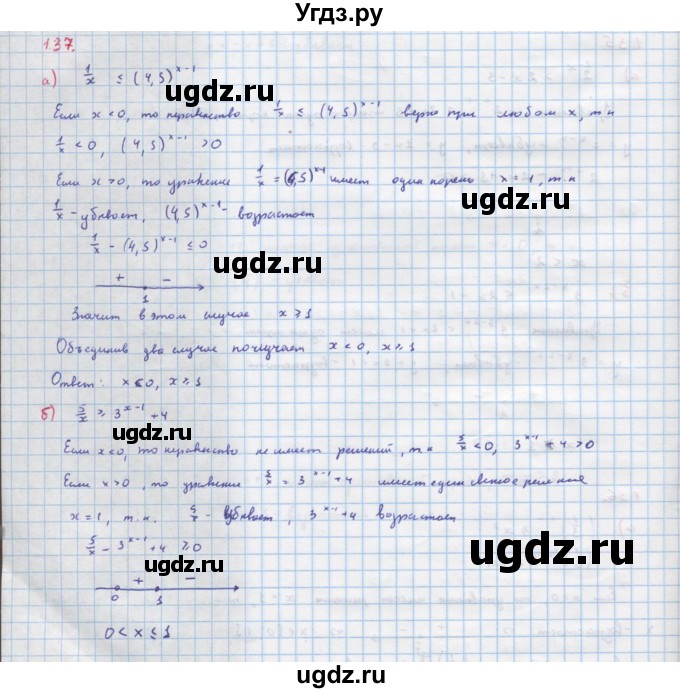 Угдз.ру
1.37.
а) 1/x ≤ (4,5)^(x-1)
ugdz.ru
Если x < 0, то неравенство 1/x ≤ (4,5)^(x-1) верно при любом x, т.к
1/x < 0, (4,5)^(x-1) > 0
ugdz.ru
Если x > 0, то уравнение 1/x = (4,5)^(x-1) имеет один корень x = 1, т.к
ugdz.ru
1/x - убывает, (4,5)^(x-1) - возрастает
1/x - (4,5)^(x-1) ≤ 0
ugdz.ru
+ -
1
Значит в этом случае x ≥ 1
Объединив два случае получает x < 0, x ≥ 1
ugdz.ru
Ответ: x < 0, x ≥ 1
ugdz.ru
б) 5/x ≥ 3^(x-1) + 4
Если x < 0, то неравенство не имеет решений, т.к 5/x < 0, 3^(x-1) + 4 > 0
ugdz.ru
Если x > 0, то уравнение 5/x = 3^(x-1) + 4 имеет единственное решение
x = 1, т.к. 5/x - убывает, 3^(x-1) + 4 возрастает
ugdz.ru
5/x - 3^(x-1) + 4 ≥ 0
ugdz.ru
+ -
0 1
0 < x ≤ 1
ugdz.ru
ugdz.ru